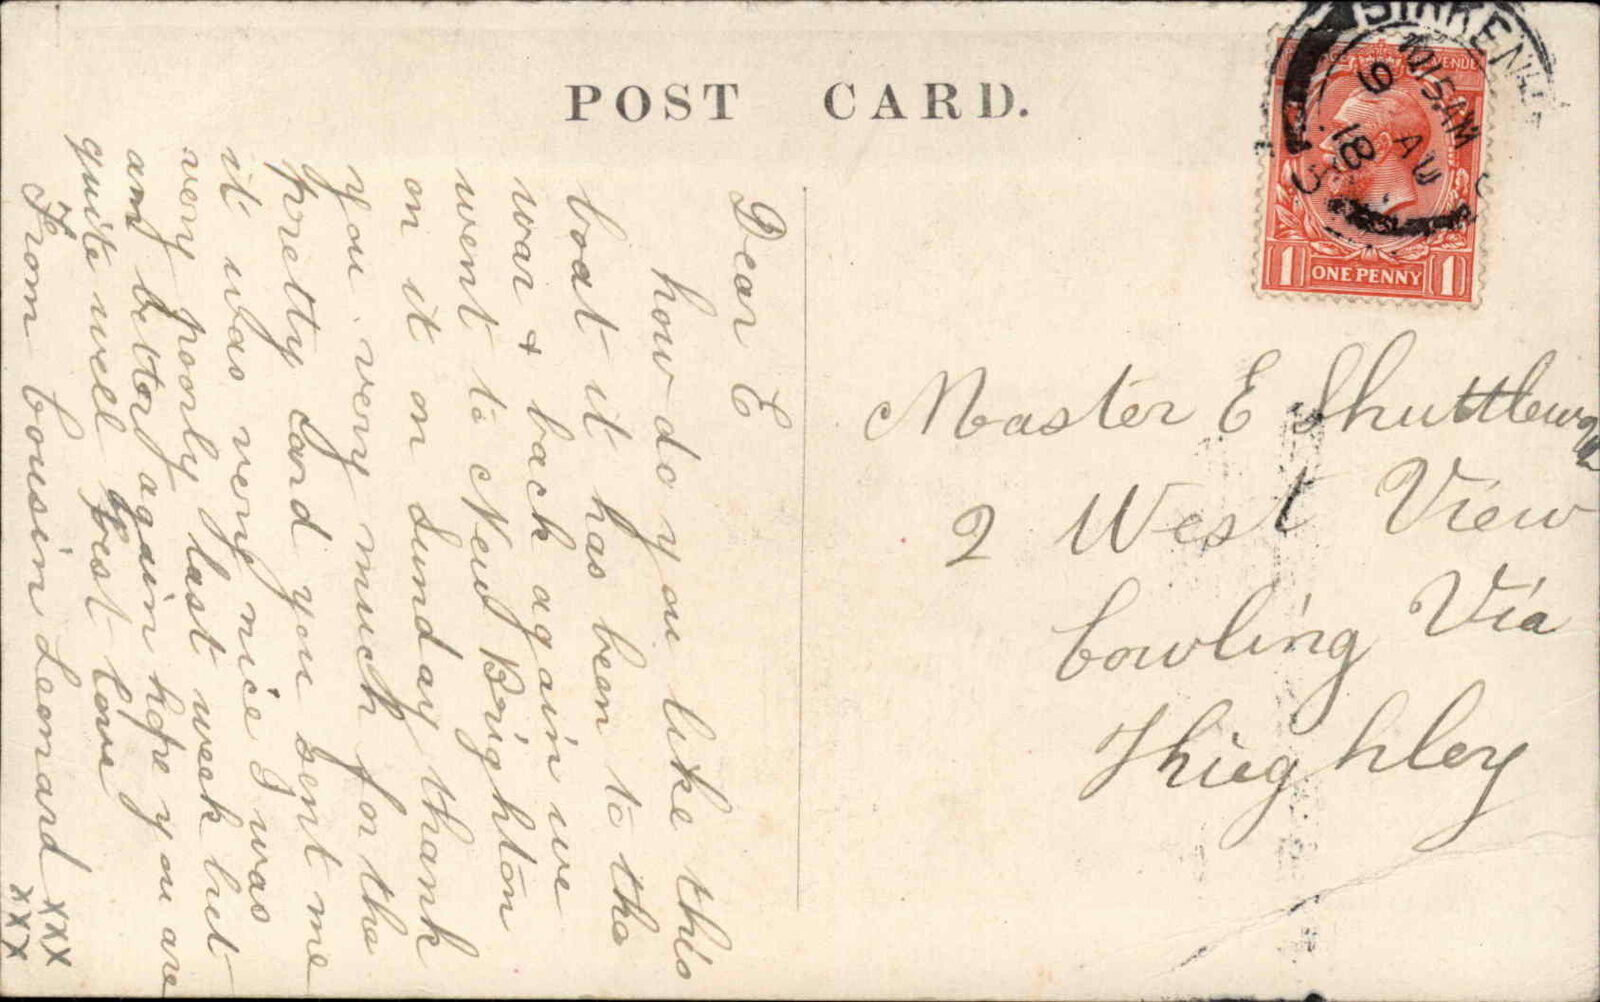 POST CARD.
BIRKENH
10 15 AM
9 AU
18
ONE PENNY
1 1
Dear E
how do you like this
boat it has been to the
war & back again we
went to New Brighton
on it on Sunday thank
you very much for the
pretty card you sent me
it was very nice I was
very poorly last week but
am better again hope you are
quite well best love
From Cousin Leonard xxx
xxx
Master E Shuttlewo
2 West View
Cowling Via
Khieghley